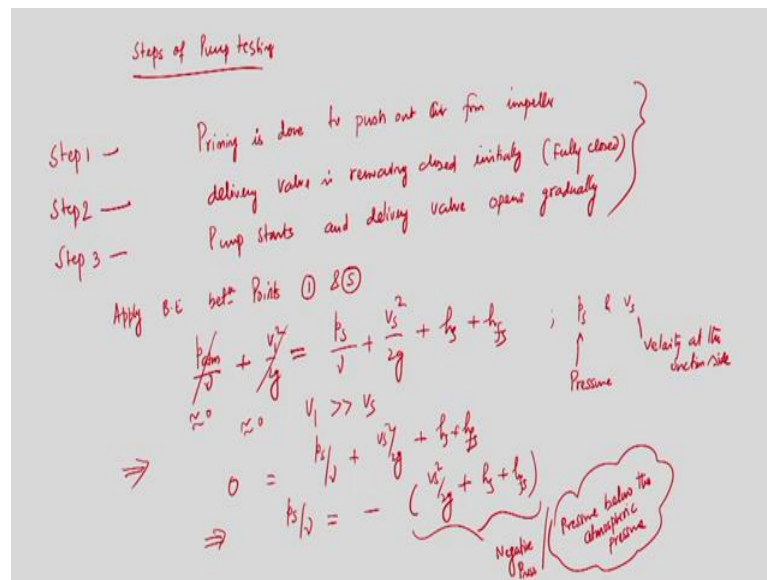 Steps of Pump testing
Step 1 — Priming is done to push out air from impeller
Step 2 — delivery valve is remaining closed initially (Fully closed)
Step 3 — Pump starts and delivery valve opens gradually
Apply B.E betn Points ① & Ⓢ
patm/γ + v₁²/2g = ps/γ + vs²/2g + hs + hfs ; ps & vs
≈0 ≈0 v₁ >> vs
Pressure
velocity at the suction side
⇒ 0 = ps/γ + vs²/2g + hs + hfs
⇒ ps/γ = - (vs²/2g + hs + hfs)
Negative Press / Pressure below the atmospheric pressure